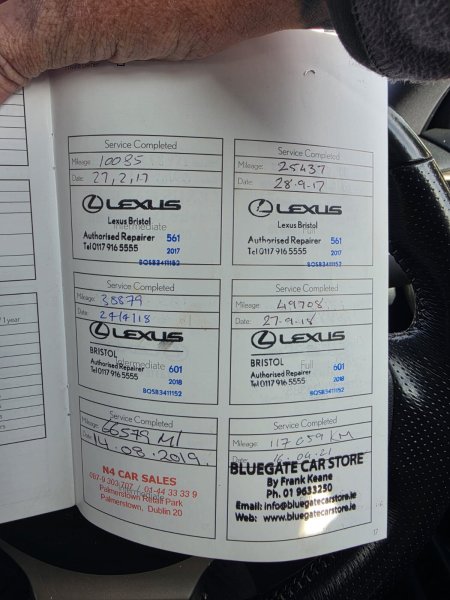 Service Completed
Mileage: 10085
Date: 27,2,17
LEXUS
Lexus Bristol
Intermediate
Authorised Repairer 561
Tel 0117 916 5555 2017
BOSB3411152
Service Completed
Mileage: 25437
Date: 28.9-17
LEXUS
Lexus Bristol
Full
Authorised Repairer 561
Tel 0117 916 5555 2017
BOSB3411152
Service Completed
Mileage: 38879
Date:
LEXUS
BRISTOL
Intermediate
Authorised Repairer 601
Tel 0117 916 5555 2018
BOSB3411152
Service Completed
Mileage: 49708
Date: 27-9-18
LEXUS
BRISTOL
Full
Authorised Repairer 601
Tel 0117 916 5555 2018
BOSB3411152
Service Completed
Mileage: 66579 MI
Date: 14.08.2019.
N4 CAR SALES
087-9 363 707 / 01-44 33 33 9
Palmerstown Retail Park
Palmerstown, Dublin 20
Service Completed
Mileage: 117059 KM
Date: 16-04-21
BLUEGATE CAR STORE
By Frank Keane
Ph. 01 9633250
Email: info@bluegatecarstore.ie
Web: www.bluegatecarstore.ie
17
1 year